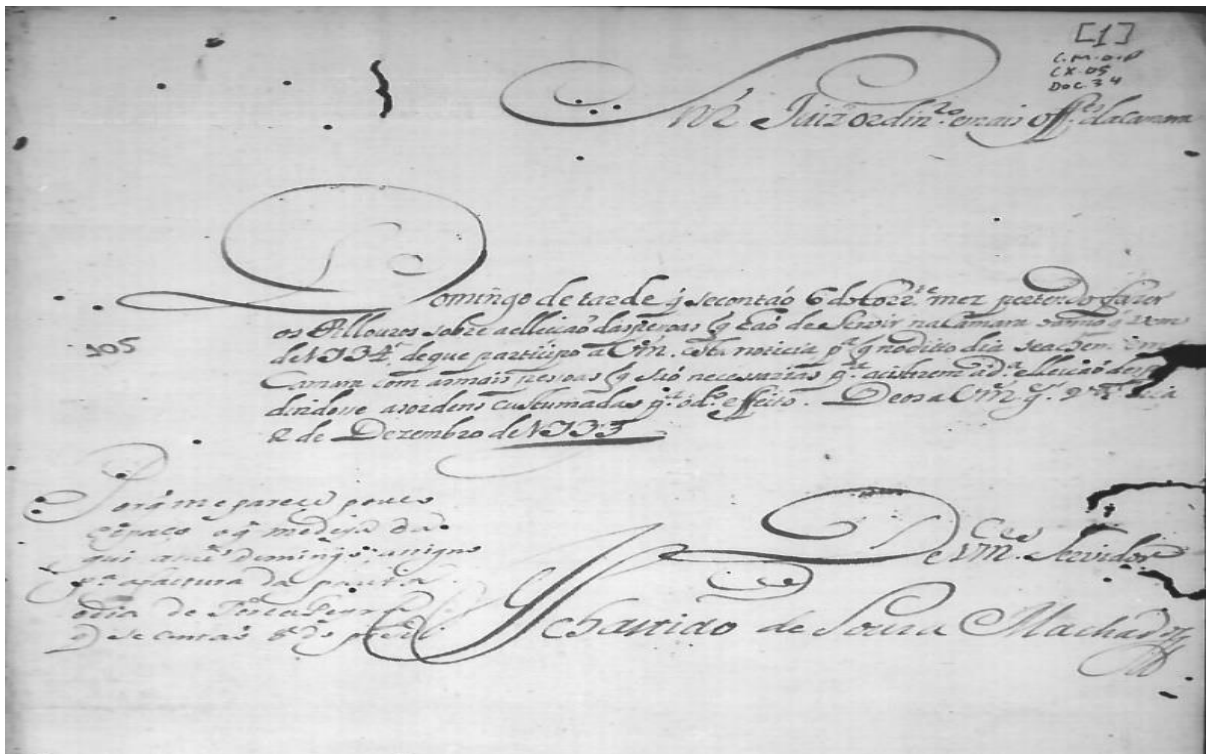 [1]
C.M.O.P
CX.05
DOC.34
Snr. Juiz ordinro. e mais offes. da Camara
Domingo de tarde q̃ se contaõ 6 do Corrte. mez pertendo fazer
os Pillouros sobre a elleicaõ das pesoas q̃ haõ de Servir na Camara o anno q̃ vem
105
de 1734. de que participo a Vm. esta noticia pa. q̃ no ditto dia se achem
Camara com as mais pesoas q̃ saõ necessarias pa. asistirem a da. elleicaõ
dindose as ordens custumadas pa. o do. effeito. Deos a Vm. gde.
2 de Dezembro de 1733
Porem me parece pouco
espaço o q̃ medeya da
qui athe Domingo; asigno
pa. a factura da pauta
o dia de Terca Feyra
q̃ se contaõ 8 do prezte.
De Vmces. Servidor
Sebastiaõ de Souza Machado